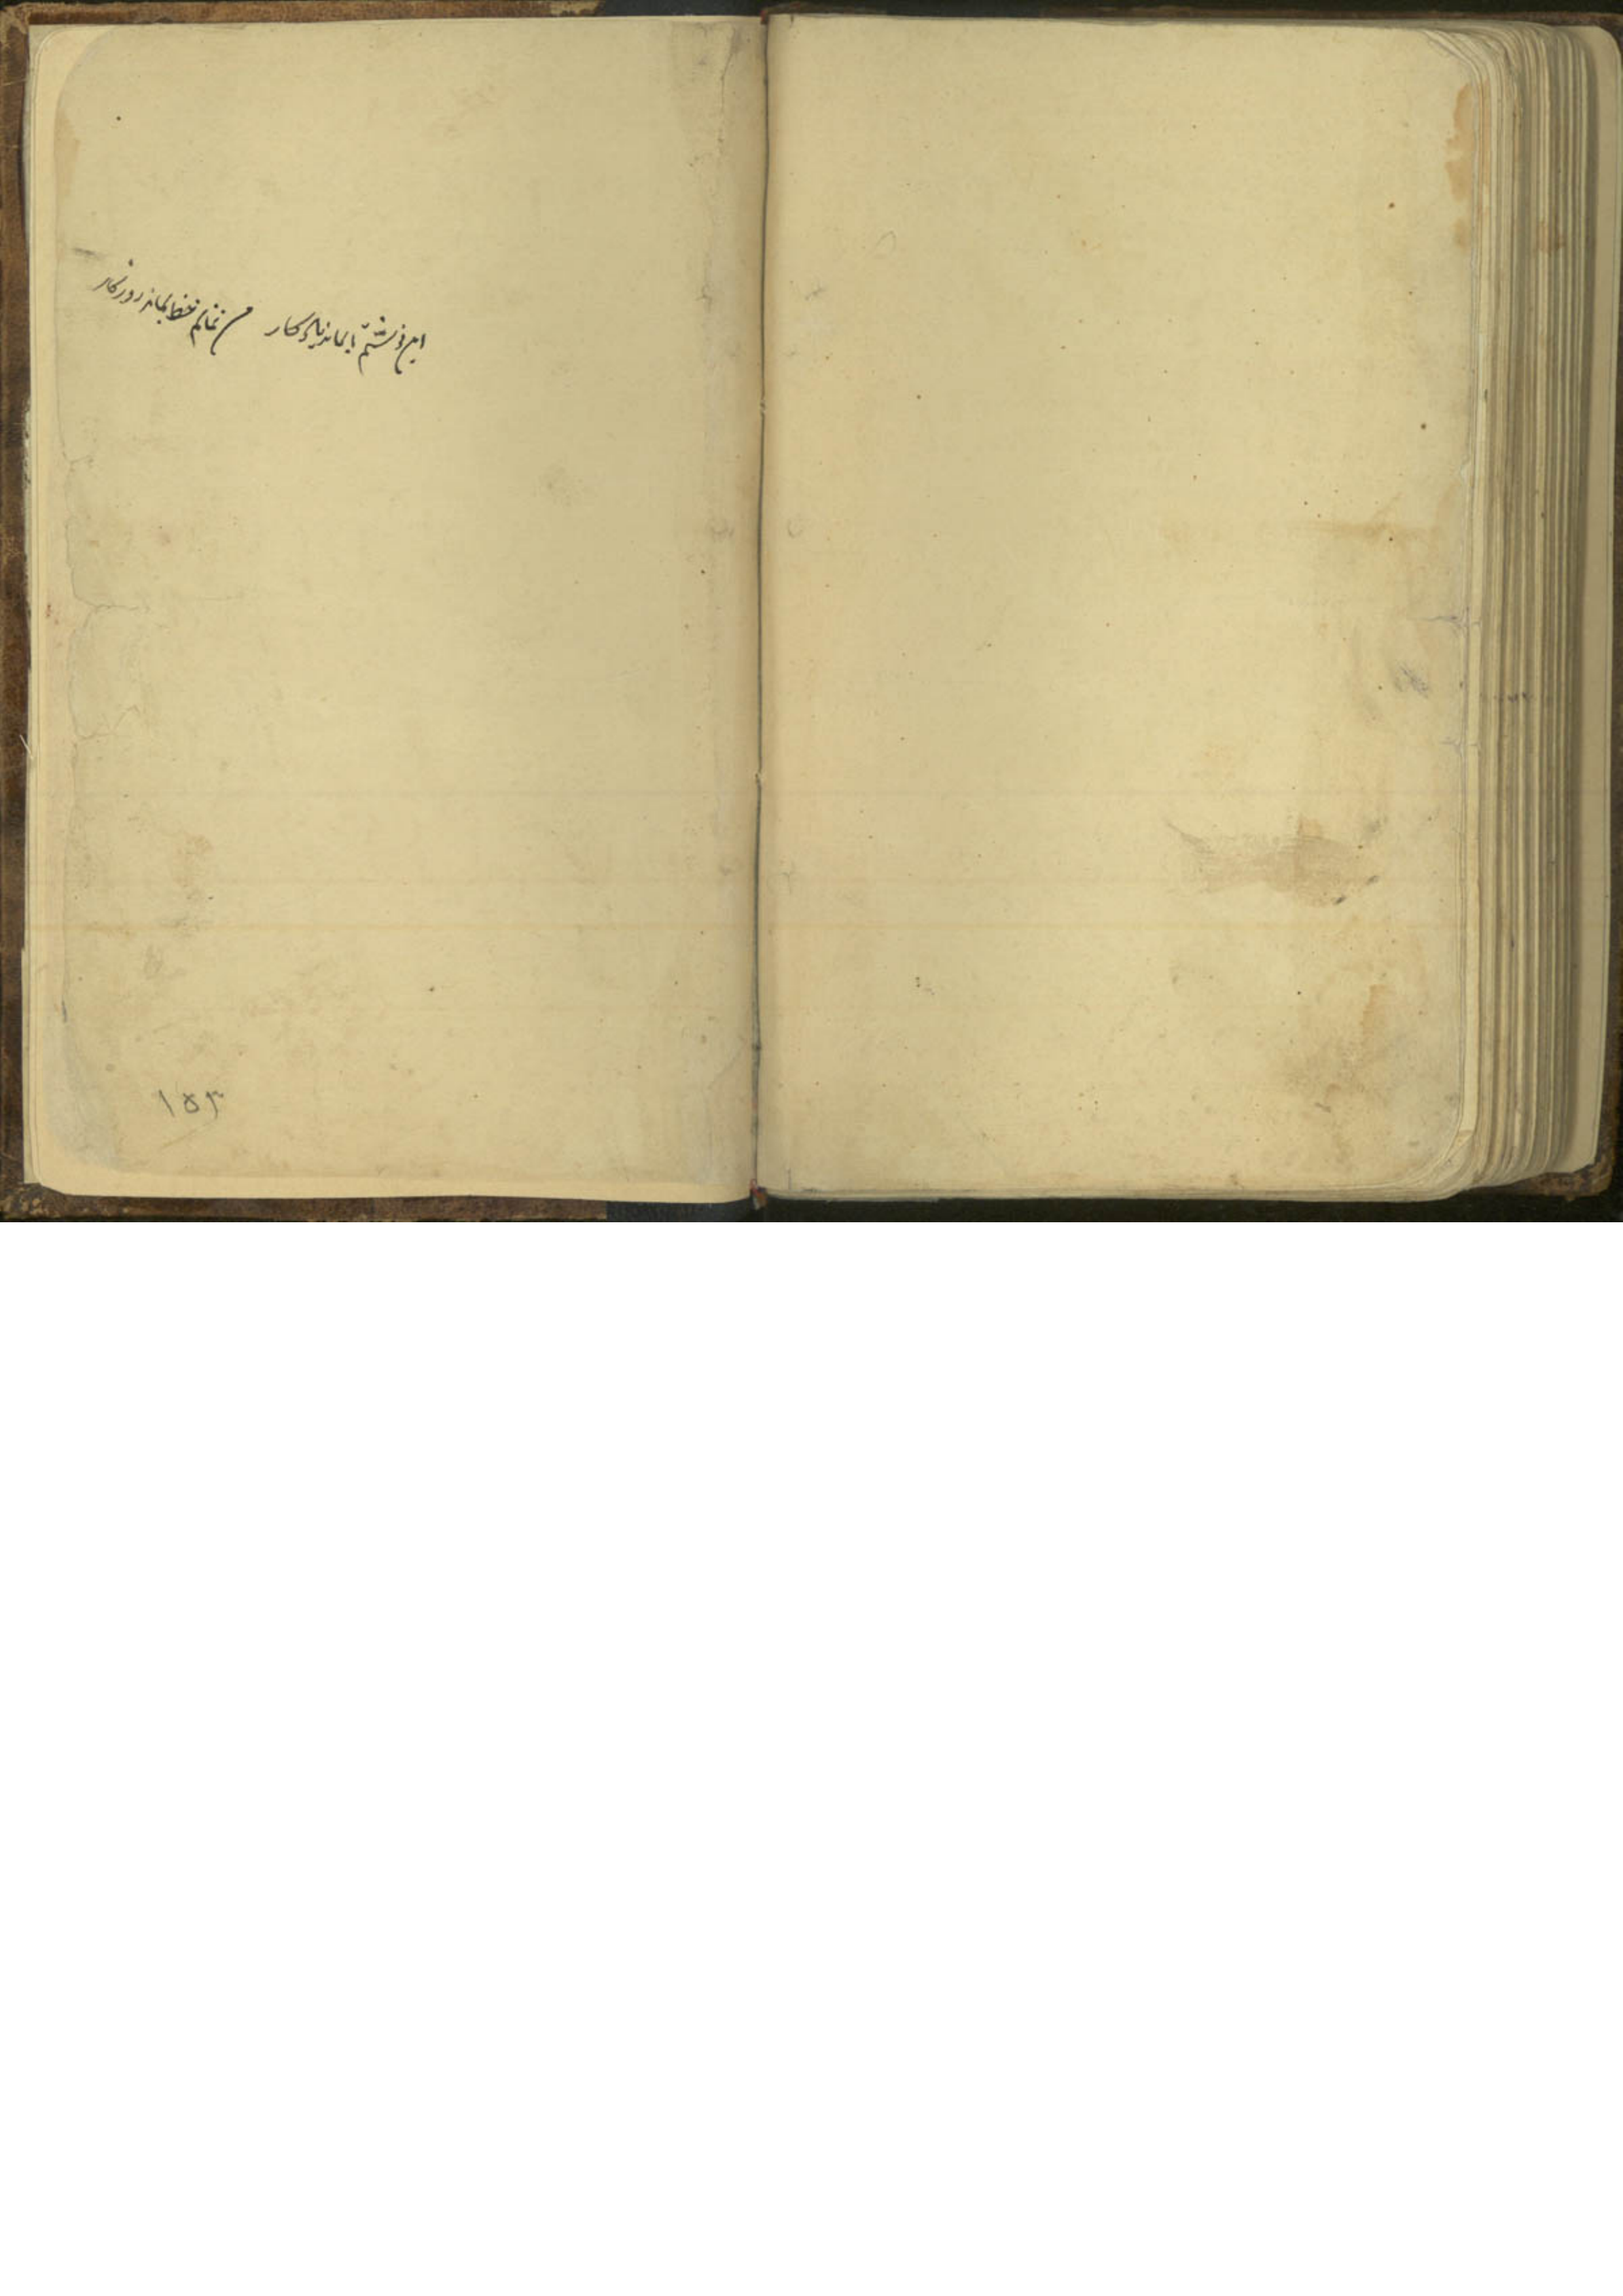 این نوشتم تا بماند یادگار من نمانم خط بماند روزگار
۱۵۳